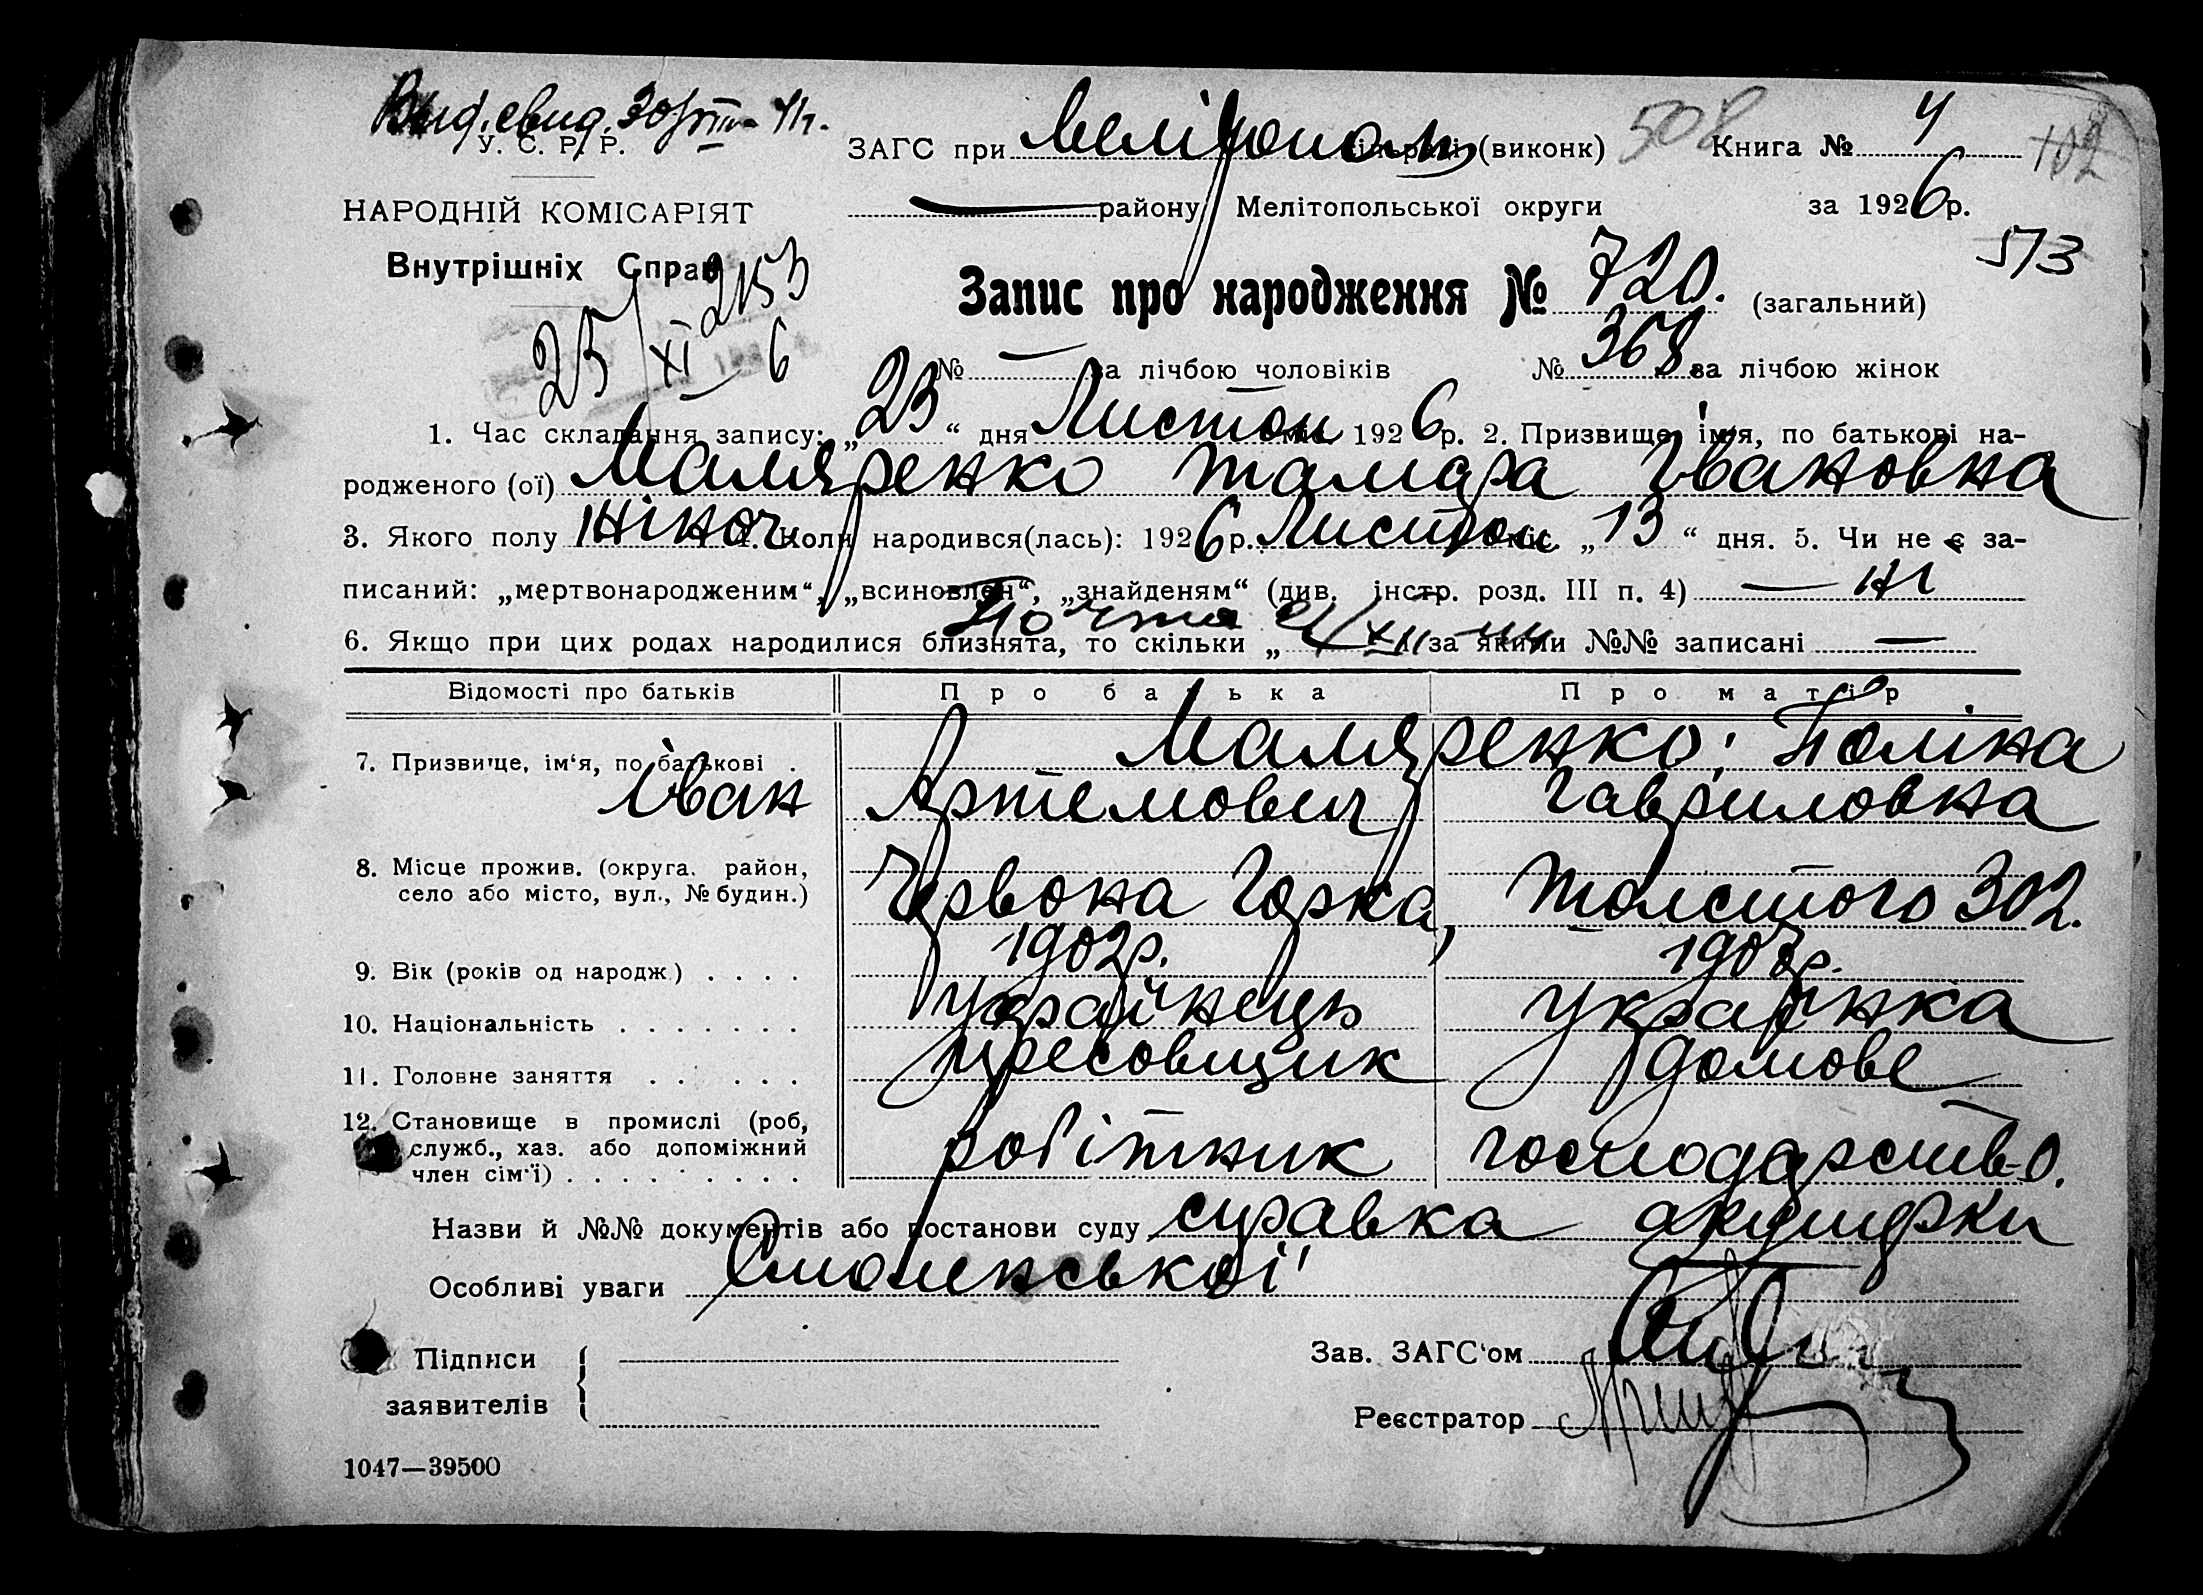 Выд. свид. 30/VIII-41г.
У. С. Р. Р.
ЗАГС при Мелітополь (виконк) 508 Книга № 4 102
НАРОДНІЙ КОМІСАРІЯТ
— району Мелітопольської округи за 1926 р.
Внутрішніх Справ
573
2153
25/XI 6
Запис про народження № 720. (загальний)
№ — за лічбою чоловіків № 368 за лічбою жінок
1. Час складання запису: „23“ дня Листоп міс. 1926 р. 2. Призвище, ім'я, по батькові на-
родженого (ої) Маляренко Тамара Івановна
3. Якого полу жіноч. 4. Коли народився(лась): 1926 р. Листоп міс. „13“ дня. 5. Чи не є за-
писаний: „мертвонародженим“, „всиновлен“, „знайденям“ (див. інстр. розд. III п. 4) — ні
Почта
6. Якщо при цих родах народилися близнята, то скільки „ за якими №№ записані —
Відомості про батьків Про батька Про матір
7. Призвище, ім‘я, по батькові . Маляренко: Поліна
Іван Артемович Гавриловна
8. Місце прожив. (округа, район,
село або місто, вул., № будин.) Червона Горка, Толстого 302.
9. Вік (років од народж.) . . . . 1902р. 190 р.
10. Національність . . . . . . . Українець Українка
11. Головне заняття . . . . . . пресовщик домове
12. Становище в промислі (роб,
служб., хаз. або допоміжний робітник господарств-о.
член сім'ї) . . . . . . . .
Назви й №№ документів або постанови суду справка акушерки
Особливі уваги Смоленської
Підписи Зав. ЗАГС‘ом
заявителів Реєстратор
1047—39500